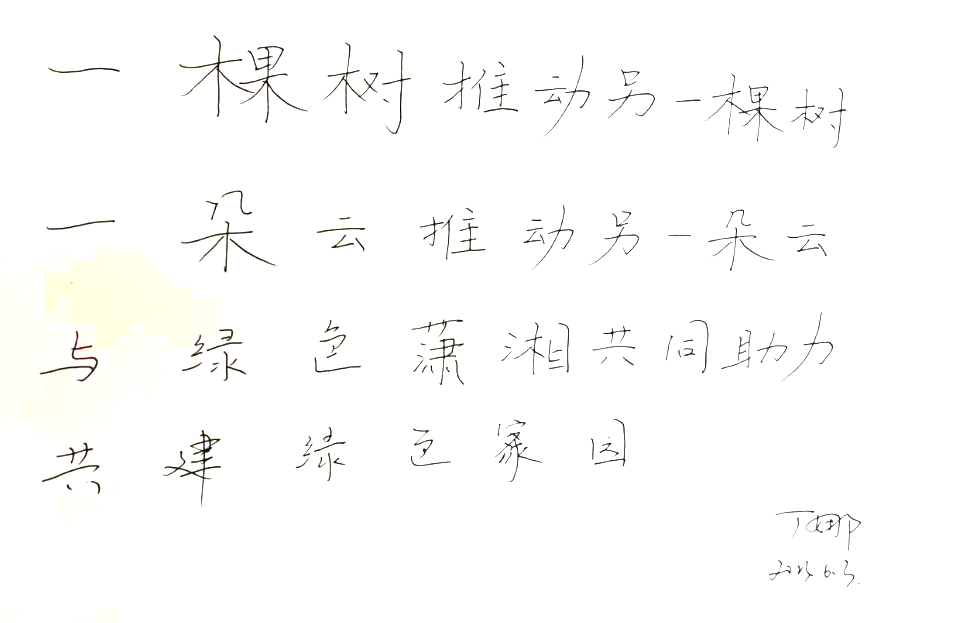 一棵树推动另一棵树
一朵云推动另一朵云
与绿色潇湘共同助力
共建绿色家园
丁娜